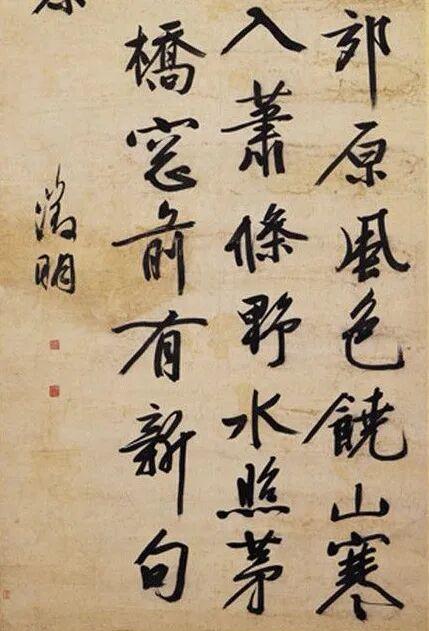 郊原風色饒山寒
入蕭條野水照茅
橋窓前有新句
徵明